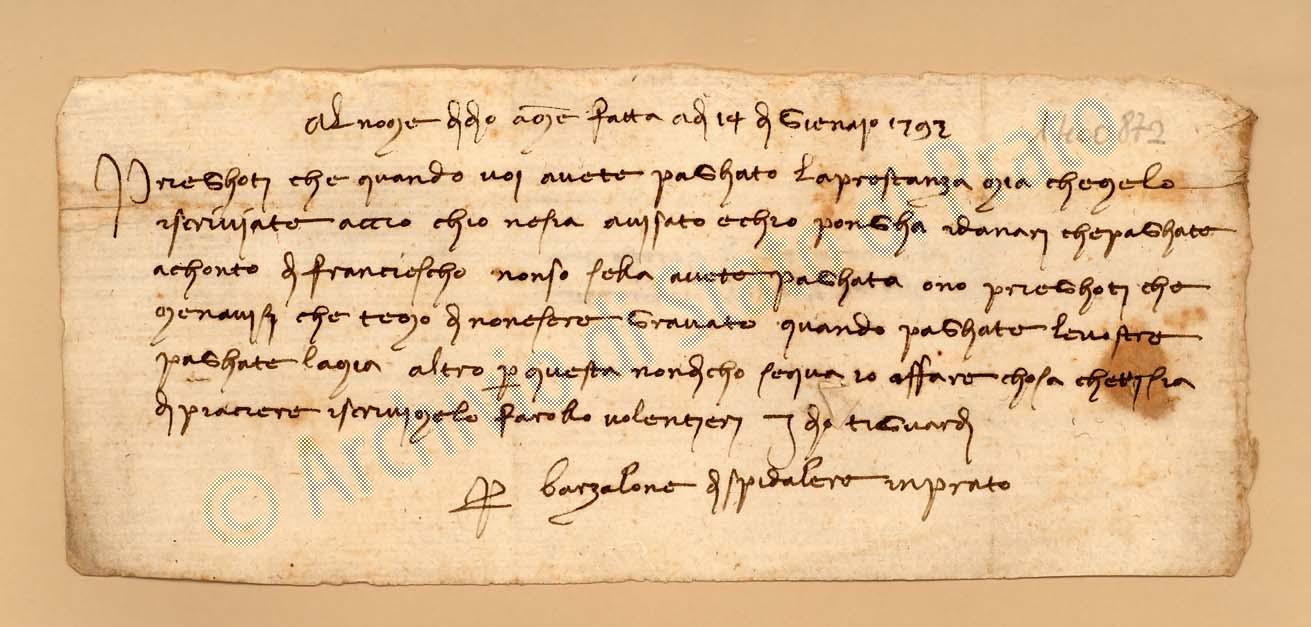 Al nome di dio ame fatta adi 14 di Gienaio 1392
Prieghoti che quando voi avete paghato laprestanza mia chemelo
iscriviate accio chio nesia avisato echio pongha idanari chepaghate
achonto di franciescho nonso sella avete paghata ono prieghoti che
menavisi che temo di nonesere gravato quando paghate levostre
paghate lamia altro p questa nondicho sequa io affare chosa chetisia
di piaciere iscrivimelo farollo volentieri Idio tiGuardi
p barzalone dispidaliere inprato
1400872
© Archivio di Stato di Prato